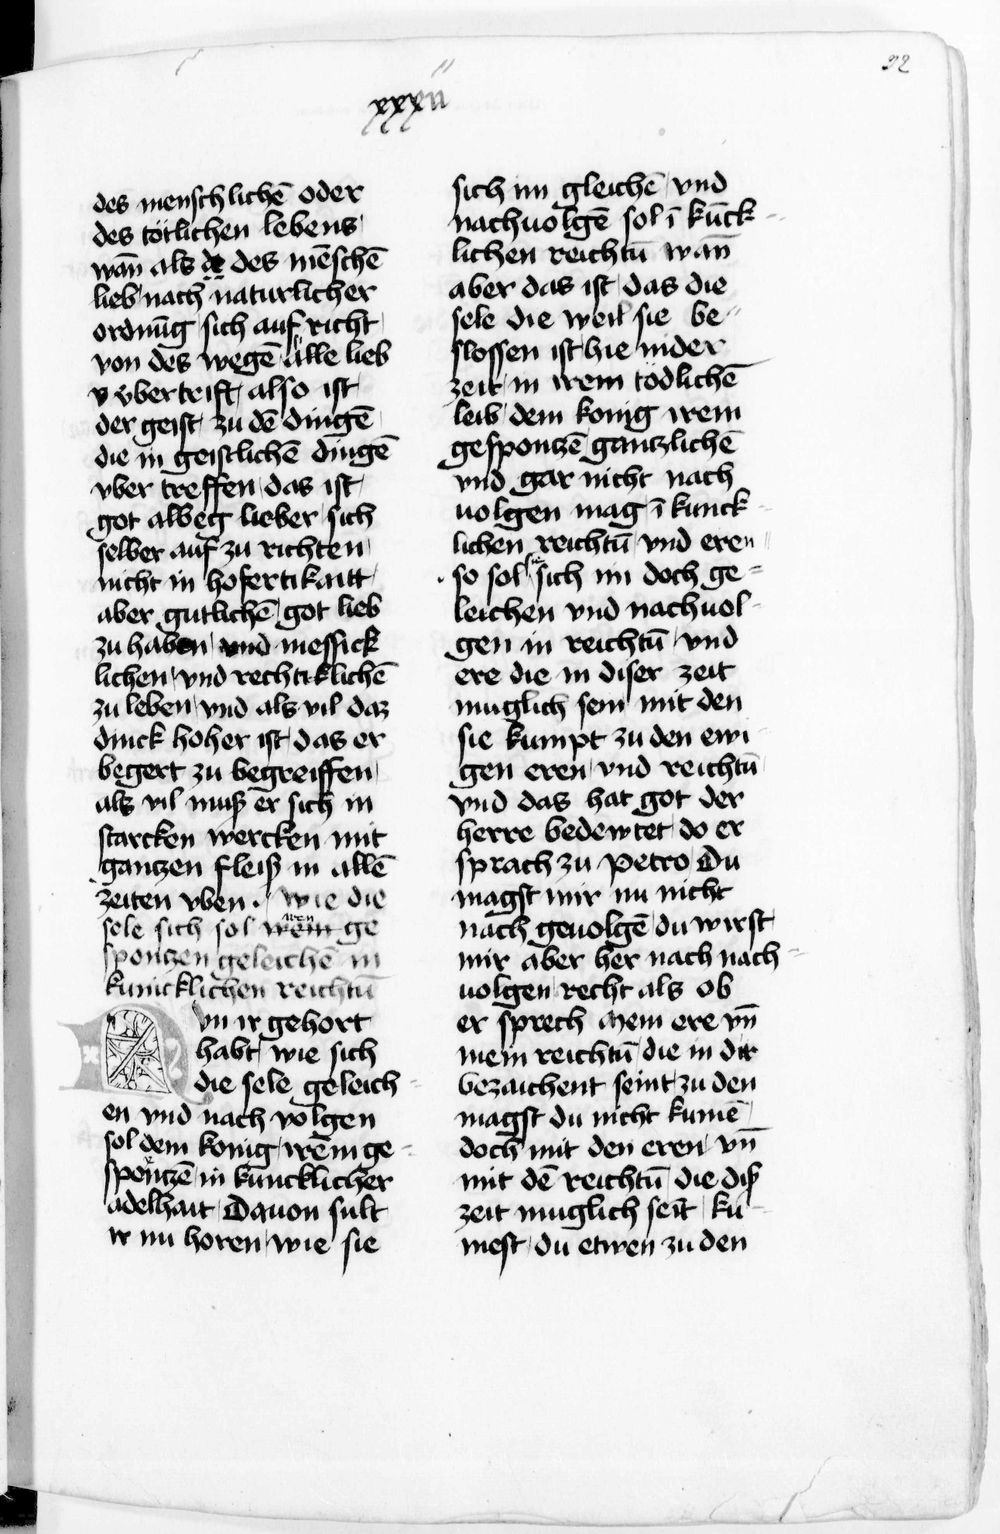 32
xxxii
des menschlichē oder
des tötlichen lebens
wañ als de des mēschē
lieb nach naturlicher
ordnūg sich auf richt
von des wegē alle lieb
v v̈bertrift also ist
der geist zu dē dingē
die in geistlichē dingē
vber treffen das ist
got albeg lieber sich
selber auf zu richten
nicht in hofertikaitt
aber gutlichē got lieb
zu haben vnd messick
lichen vnd rechtiklichē
zu leben vnd als vil daz
dinck hoher ist das er
begert zu begreiffen
als vil muß er sich in
starcken wercken mit
gantzen fleiß in allē
zeiten vben . wie die
sele sich sol irem ge
spontzen geleichē in
kunicklichen reichtū
Nvn ir gehort
habt wie sich
die sele geleich
en vnd nach volgen
sol dem konig irem ge
spontzē in kuncklicher
adelhait Dauon sult
ir nu horen wie sie
sich im gleichē vnd
nachuolgē sol ī kūck
lichen reichtū wañ
aber das ist das die
sele die weil sie be
slossen ist hie nider
zeit in irem tödlichē
leib dem konig irem
gesponczē gantzlichē
vnd gar nicht nach
uolgen mag ī kunck
lichen reichtū vnd eren
so sol sich im doch ge
leichen vnd nachuol
gen in reichtū vnd
ere die in diser zeit
muglich sein mit den
sie kumpt zu den ewi
gen eren vnd reichtū
vnd das hat got der
herre bedewtet do er
sprach zu petro Du
magst mir nu nicht
nach geuolgē du wirst
mir aber her nach nach
uolgen recht als ob
er sprech Mein ere vñ
mein reichtū die in dir
bezaichent seint zu den
magst du nicht kumē
doch mit den eren vñ
mit dē reichtū die diß
zeit muglich seīt ku
mest du etwen zu den